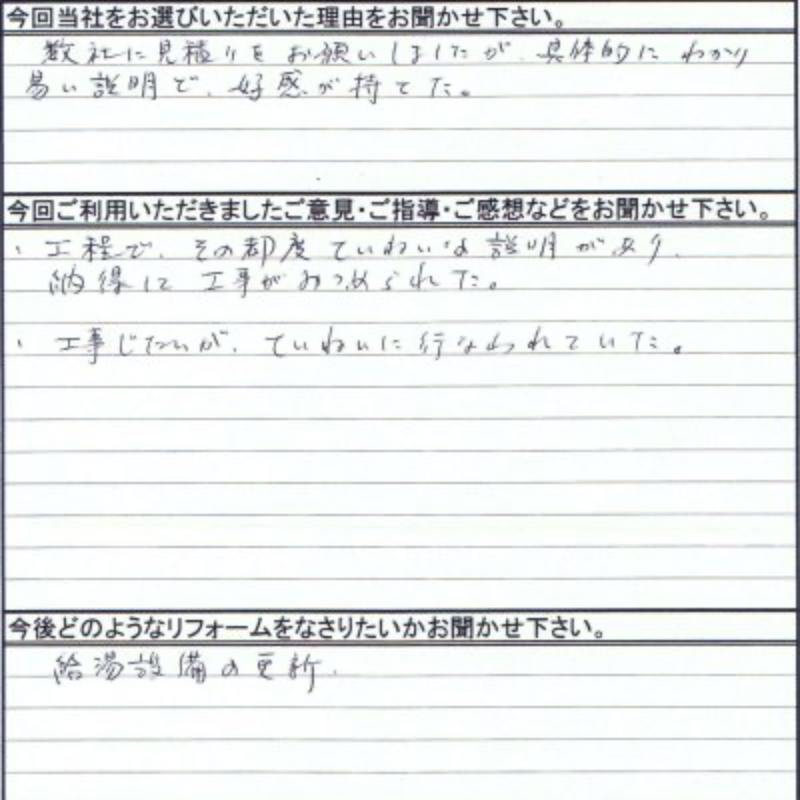 今回当社をお選びいただいた理由をお聞かせ下さい。
数社に見積りをお願いしましたが、具体的にわかり
易い説明で、好感が持てた。
今回ご利用いただきましたご意見・ご指導・ご感想などをお聞かせ下さい。
・工程で、その都度ていねいな説明があり、
納得に工事がみつめられれた。
・工事じたいが、ていねいに行なわれていた。
今後どのようなリフォームをなさりたいかお聞かせ下さい。
給湯設備の更新.